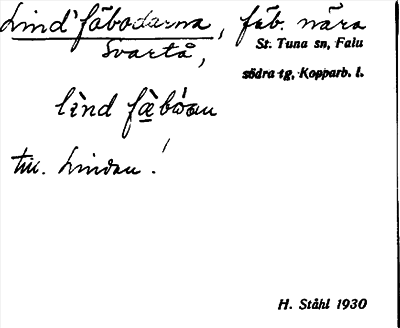 Lind'fäbodarna, fäb. nära
Svartå,
St. Tuna sn, Falu
södra tg, Kopparb. l.
lìnd fæ̀bωan
till. Lindan!
H. Ståhl 1930